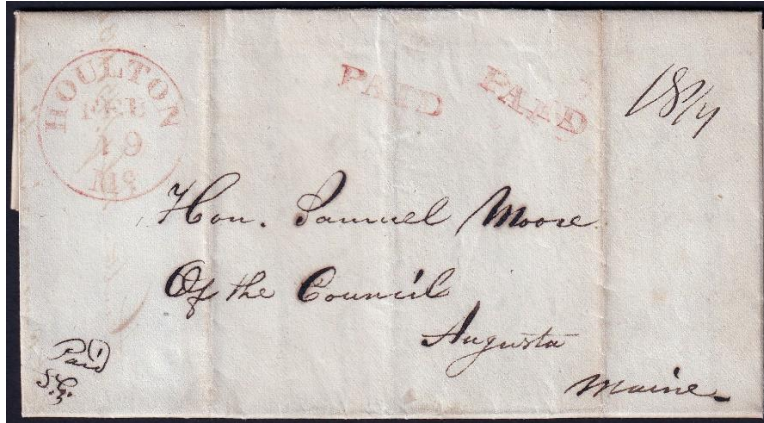 HOULTON
FEB
19
Me
PAID
PAID
18¾
Hon. Samuel Moore
Of the Council
Augusta
Maine
Paid